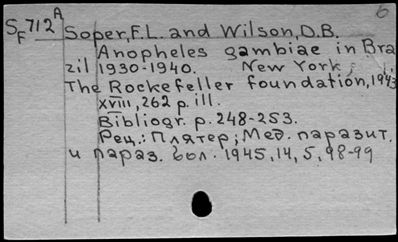 6
SF712A Soper, F.L. and Wilson, D.B.
Anopheles gambiae in Bra
zil 1930-1940. New York,
The Rockefeller foundation, 1943
XVIII, 262 p. ill.
Bibliogr. p. 248-253.
Рец.: Плятер; Мед. паразит.
и параз. бол. 1945, 14, 5, 98-99